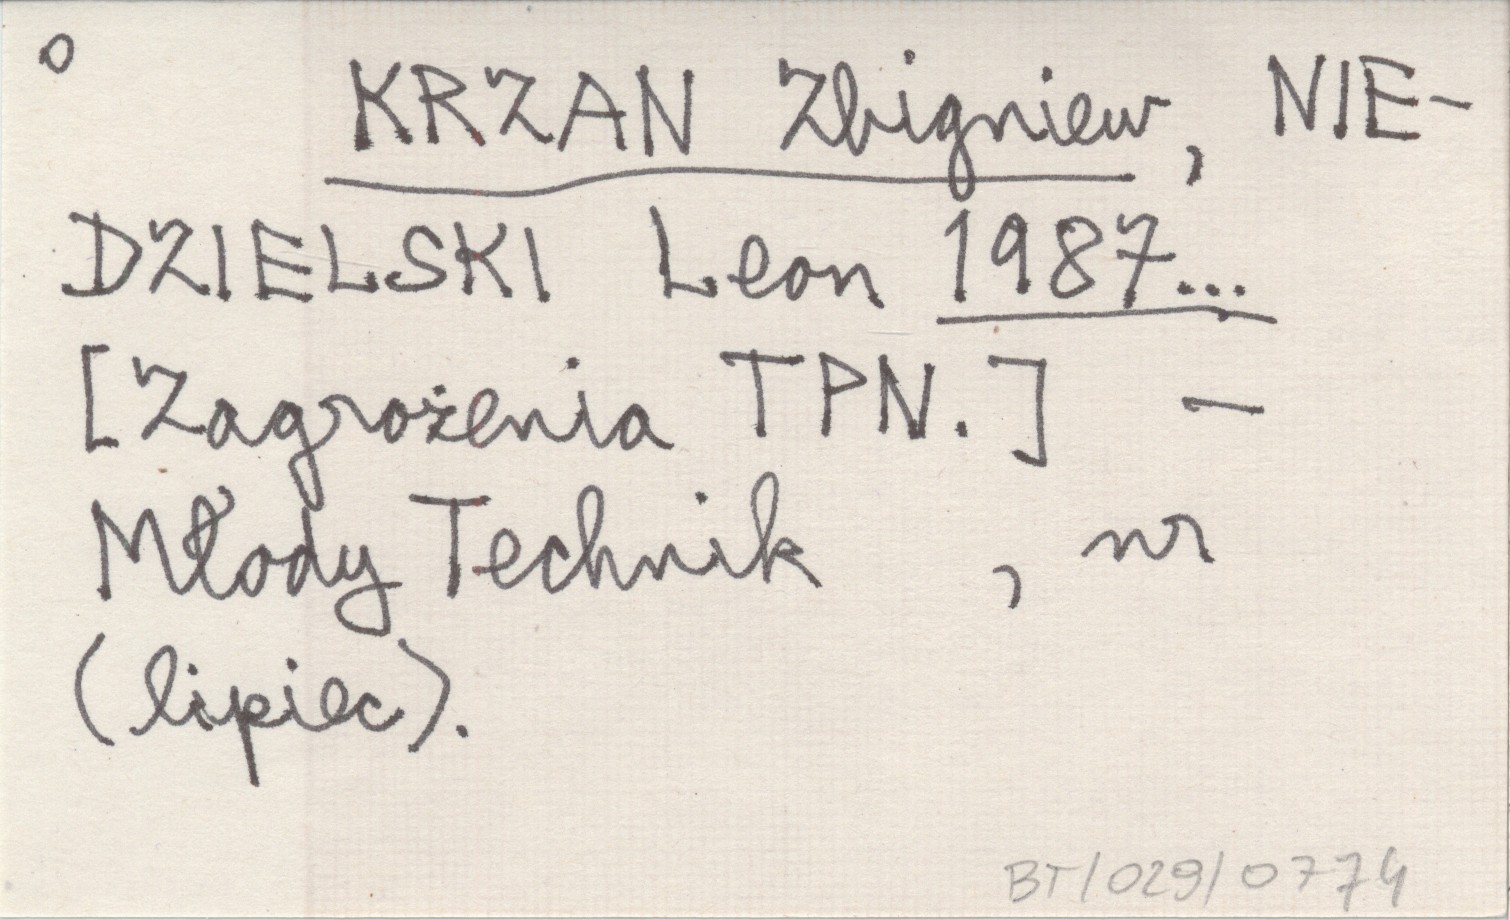 o
KRZAN Zbigniew, NIE-
DZIELSKI Leon 1987...
[Zagrożenia TPN.] –
Młody Technik , nr
(lipiec).
BT/029/0774